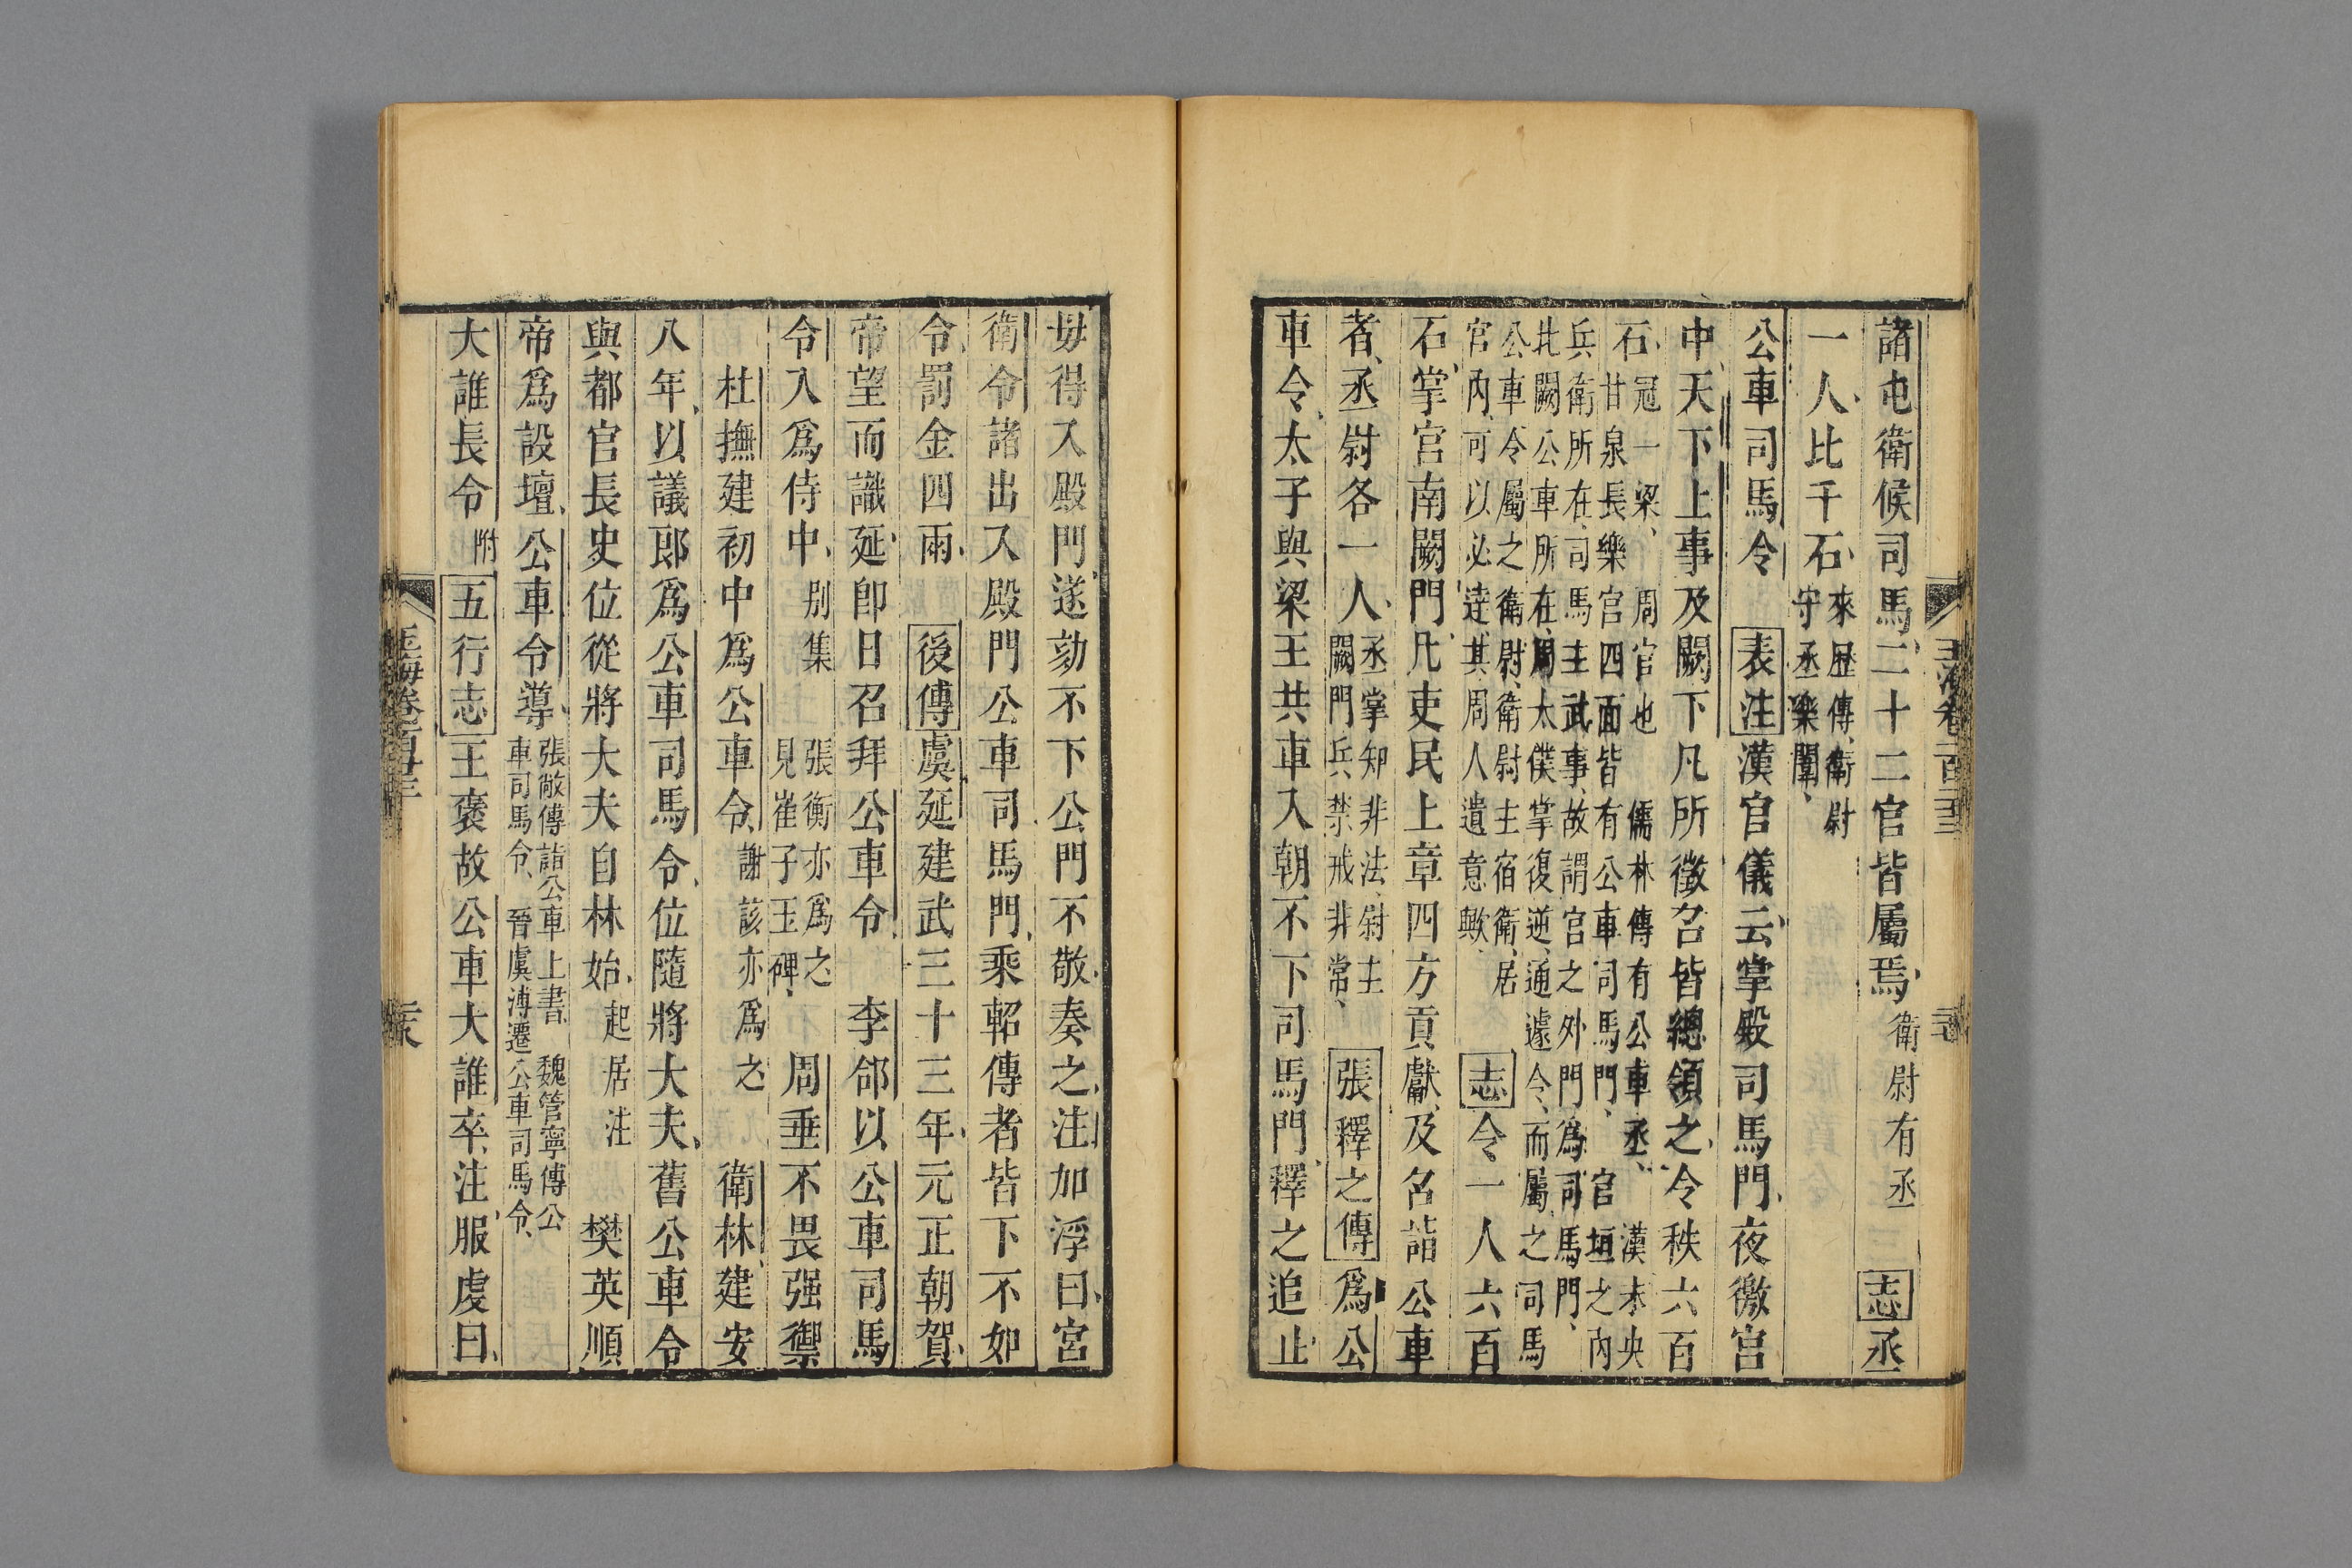 諸屯衛候司馬二十二官皆屬焉衛尉有丞志丞
一人比千石來歷傳衛尉
守丞樂闡
公車司馬令表注漢官儀云掌殿司馬門夜徼宮
中天下上事及闕下凡所徵召皆總領之令秩六百
石冠一梁 周官也 儒林傳有公車丞 漢未央
甘泉長樂宮四面皆有公車司馬門 官垣之內
兵衛所在司馬主武事故謂宮之外門為司馬門
北闕公車所在周太僕掌復逆通遽令而屬之司馬
公車令屬之衛尉衛尉主宿衛居
官內可以必達其周人遺意歟志令一人六百
石掌宮南闕門凡吏民上章四方貢獻及名詣公車
者丞尉各一人丞掌知非法尉主
闕門兵禁戒非常張釋之傳為公
車令太子與梁王共車入朝不下司馬門釋之追止
毋得入殿門遂劾不下公門不敬奏之注加浮曰宮
衛令諸出入殿門公車司馬門乘軺傳者皆下不如
令罰金四兩後傳虞延建武三十三年元正朝賀
帝望而識延即日召拜公車令 李郃以公車司馬
令入為侍中別集 張衡亦為之
見崔子玉碑周垂不畏强禦
杜撫建初中為公車令謝該亦為之衛林建安
八年以議郎為公車司馬令位隨將大夫舊公車令
與都官長史位從將大夫自林始起居注樊英順
帝為設壇公車令導張敞傳詣公車上書 魏管寧傳公
車司馬令 晉虞溥遷公車司馬令
大誰長令附五行志王褒故公車大誰卒注服虔曰